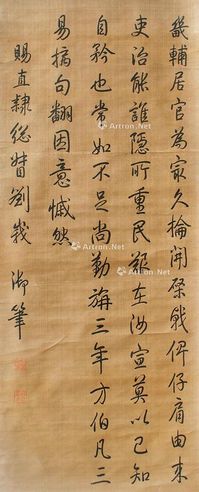 畿輔居官為家久掄開棨戟俾仔肩由来
吏治能誰隱所重民艱在汝宣莫以已知
自矜也常如不足尚勤旃三年方伯凡三
易摛句翻因意慽然
賜直隸總督劉峩 御筆
Artron.Net
Artron.Net
Artron.Net
Artron.Net